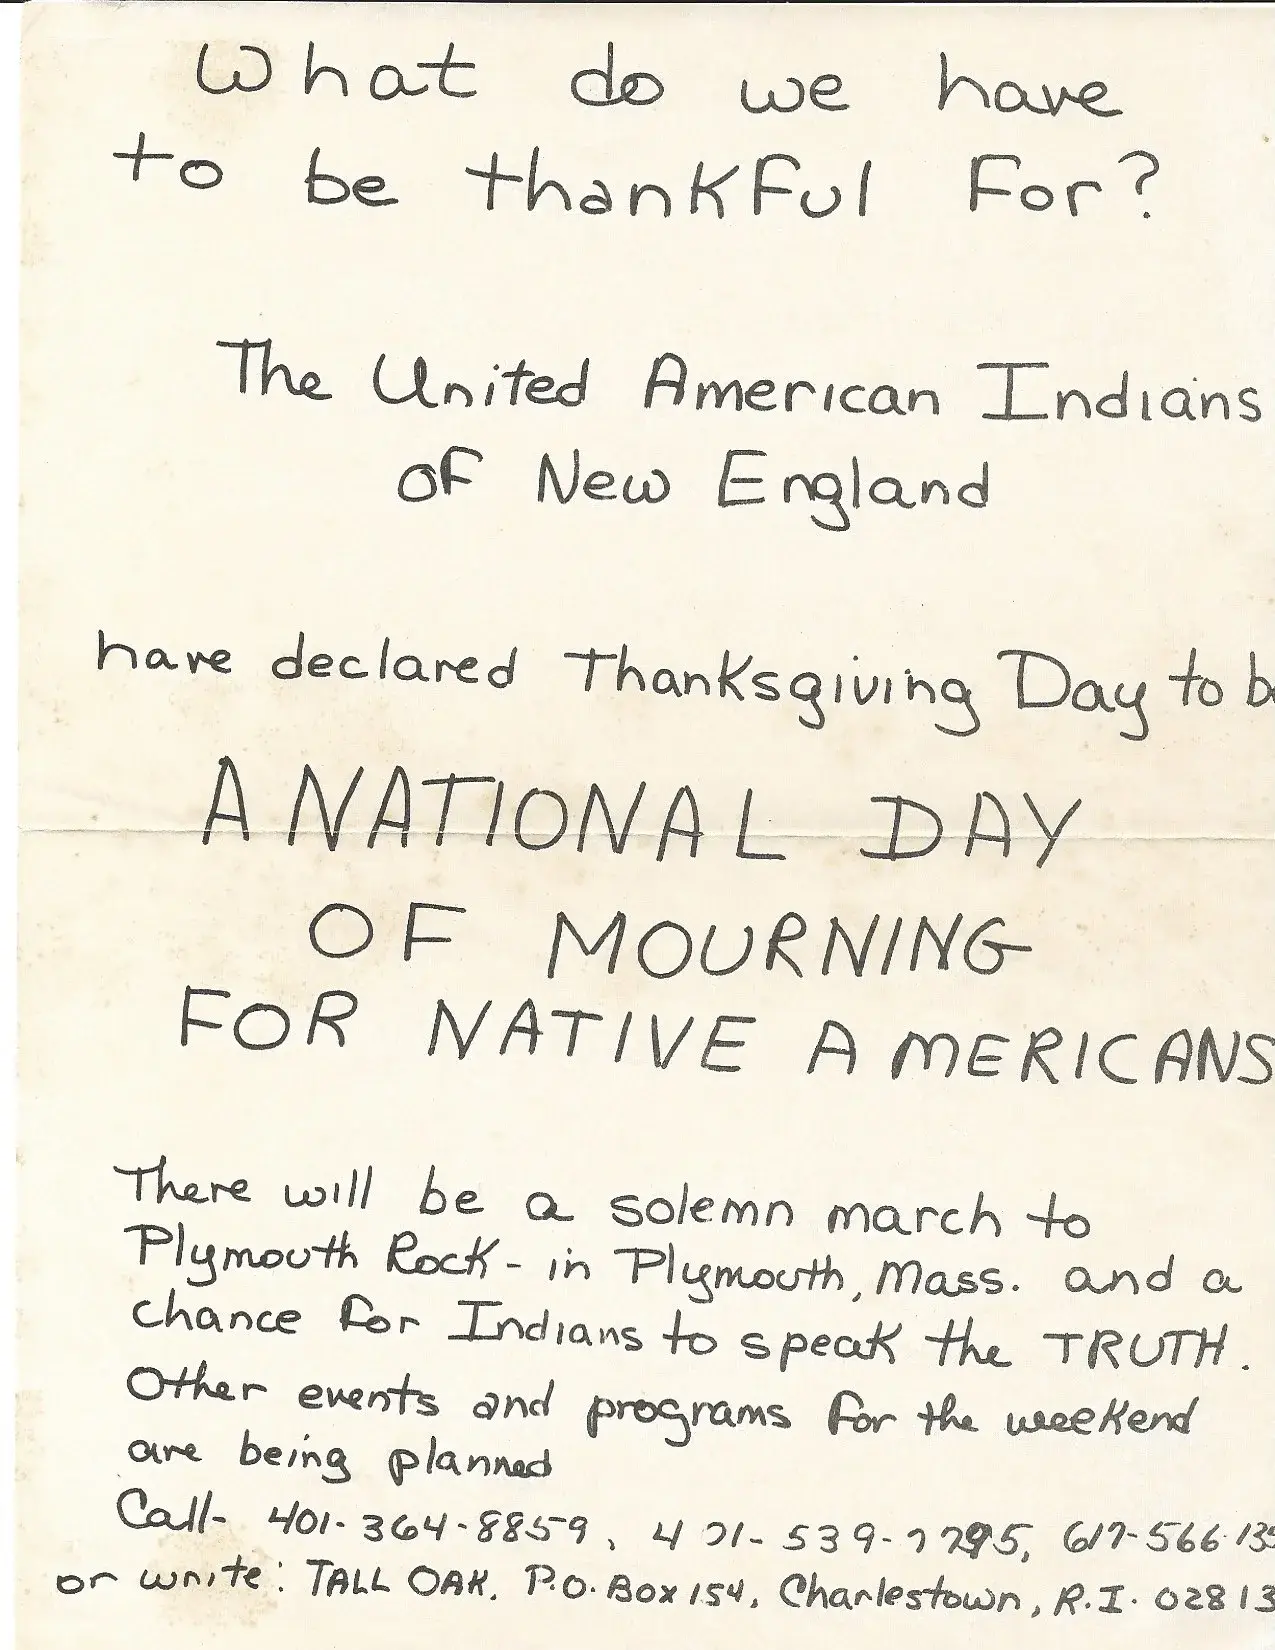 What do we have
to be thankful for?
The United American Indians
of New England
have declared Thanksgiving Day to b
A NATIONAL DAY
OF MOURNING
FOR NATIVE AMERICANS
There will be a solemn march to
Plymouth Rock - in Plymouth, Mass. and a
chance for Indians to speak the TRUTH.
Other events and programs for the weekend
are being planned
Call- 401-364-8859, 401-539-7795, 617-566-135
or write: TALL OAK, P.O. Box 154, Charlestown, R.I. 02813